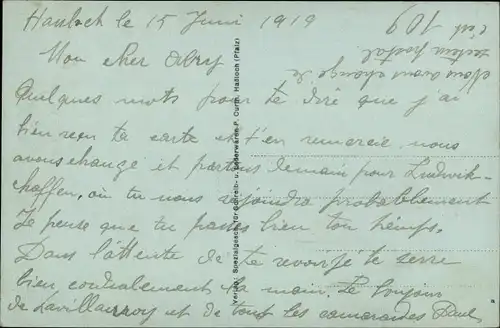 Hasloch le 15 Juni 1919
Mon cher
Quelques mots pour te dire que j'ai
bien reçu ta carte et t'en remercie, nous
avons change et partons demain pour Ludwik-
haffen, où tu nous rejoindra probablement
Je pense que tu passes bien ton temps.
Dans l'attente de te revoir je te serre
bien cordialement la main. Le bonjour
de Lavillauroy et de tout les camarades Paul
Nous avons change de
secteur postal
c'est 109
Verlag: Spezialgeschäft für Schreib- u. Lederwaren P. Curth, Haßloch (Pfalz)